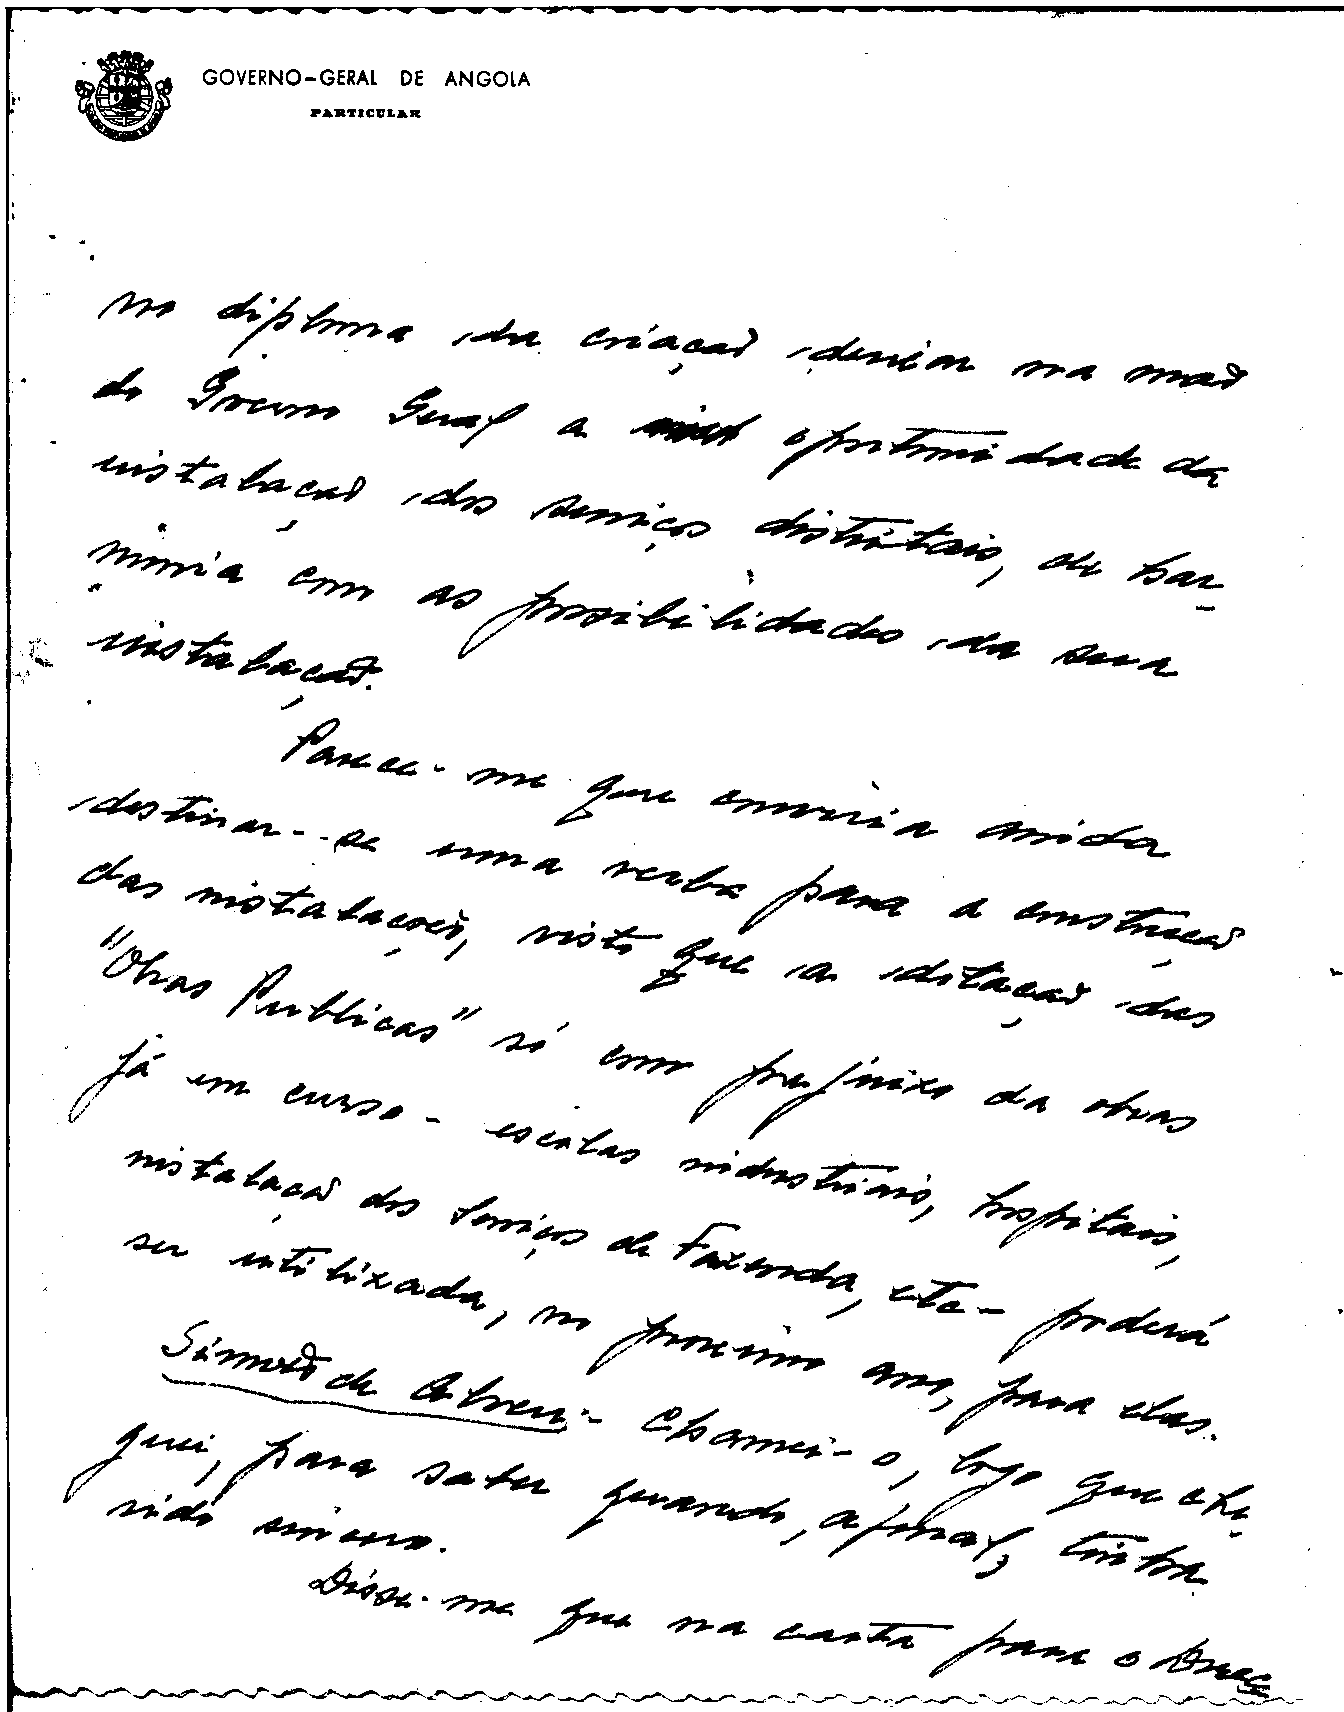 GOVERNO-GERAL DE ANGOLA
PARTICULAR
no diploma da criação deixar na mão
do Governo Geral a oportunidade da
instalação dos serviços distritais, de har-
monia com as possibilidades da sua
instalação.
Parece-me que conviria ainda
destinar-se uma verba para a construção
das instalações, visto que a dotação das
"Obras Publicas" só com prejuizo da obras
já em curso - escolas industriais, hospitais,
instalação dos Serviços de Fazenda, etc - poderá
ser utilizada, no proximo ano, para elas.
Simão de Abreu - Chamei-o, logo que che-
guei, para saber quando, afinal, tinha
sido sincero.
Disse-me que na carta para o